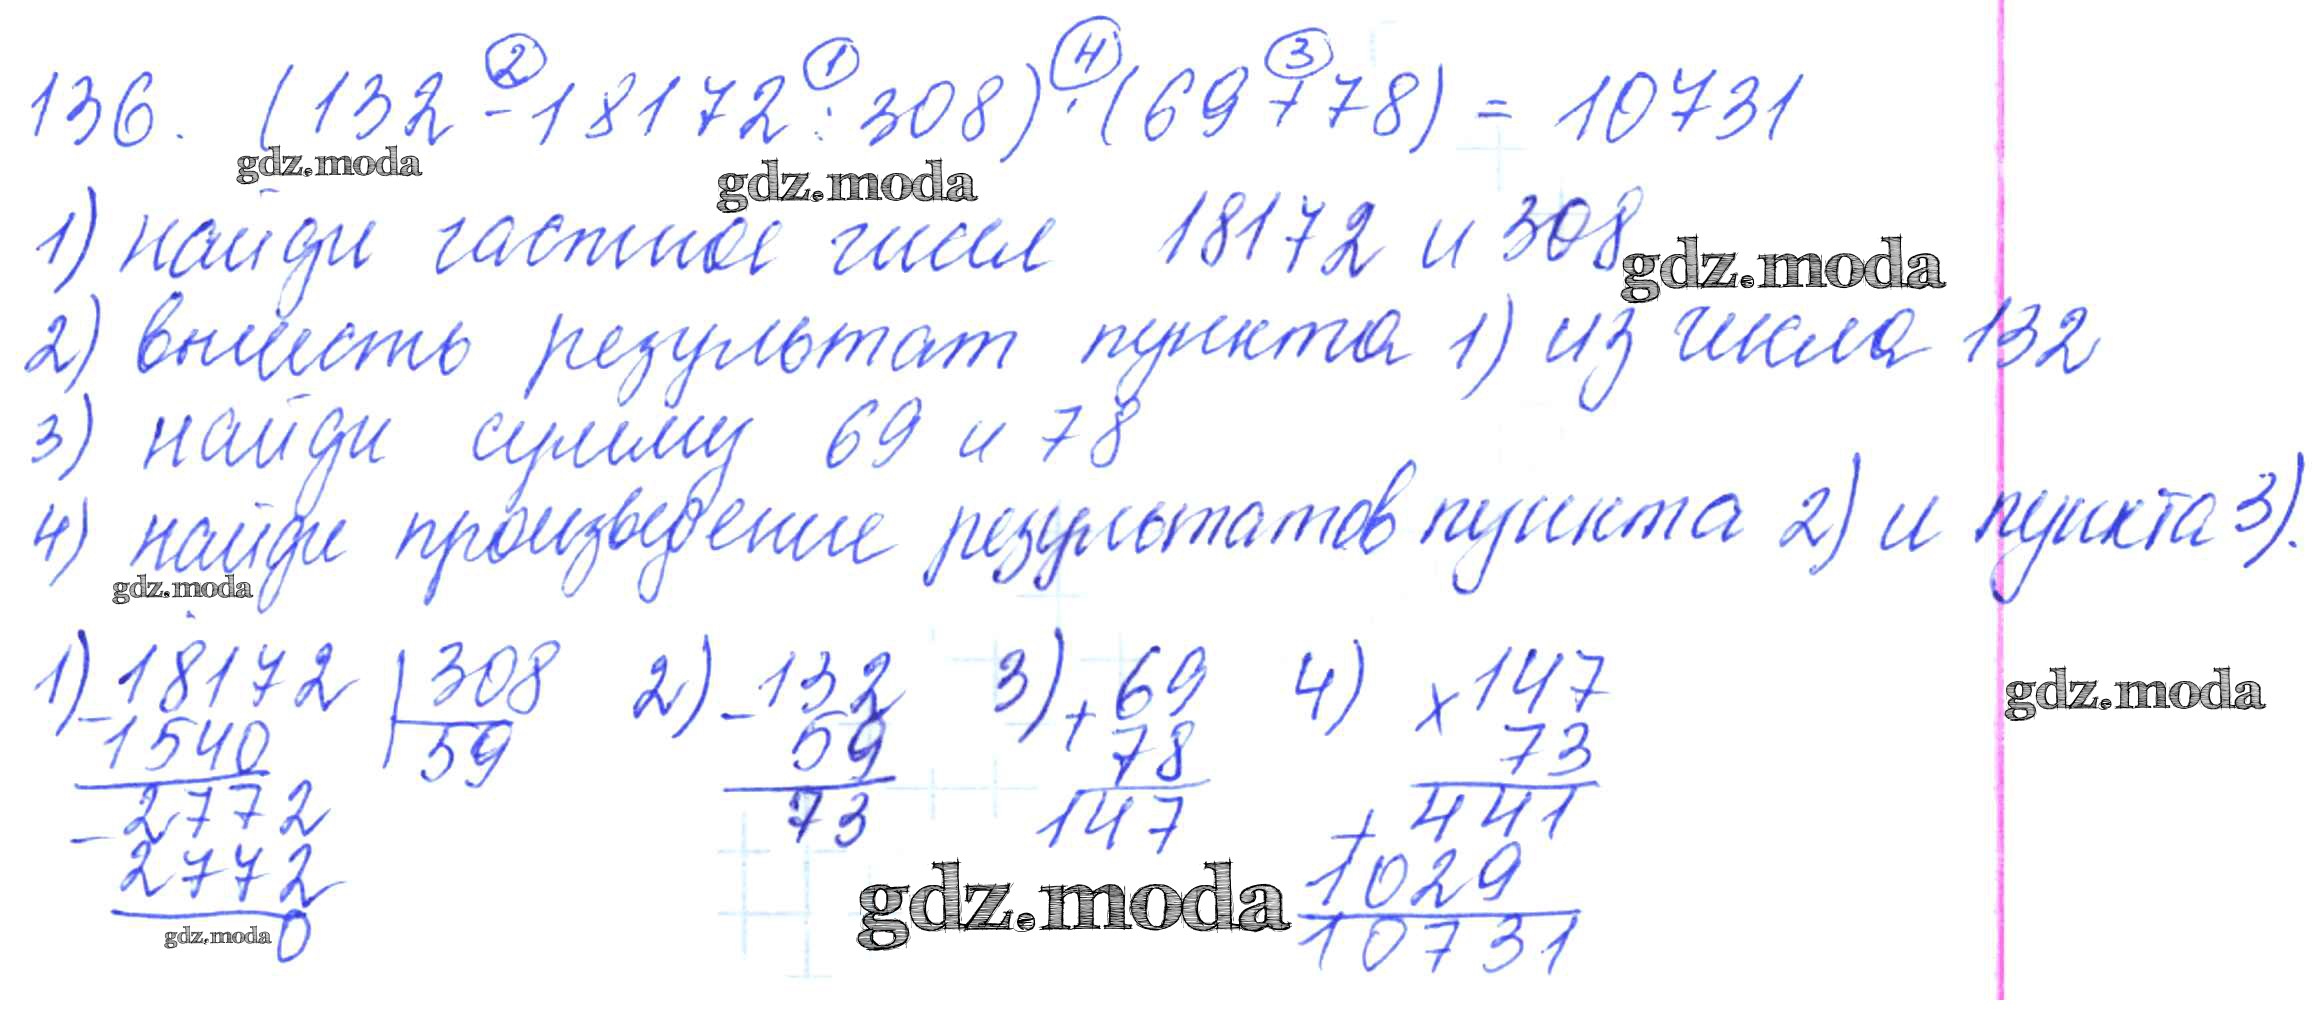 136. (132 - 18172 : 308) · (69 + 78) = 10731
2 1 4 3
gdz.moda gdz.moda
1) найди частное чисел 18172 и 308
gdz.moda
2) вычесть результат пункта 1) из числа 132
3) найди сумму 69 и 78
4) найди произведение результатов пункта 2) и пункта 3).
gdz.moda
1) - 18172 | 308 2) - 132 3) + 69 4) × 147
gdz.moda
1540 59 59 78 73
- 2772 73 147 + 441
2772 1029
gdz.moda
0 10731
gdz.moda